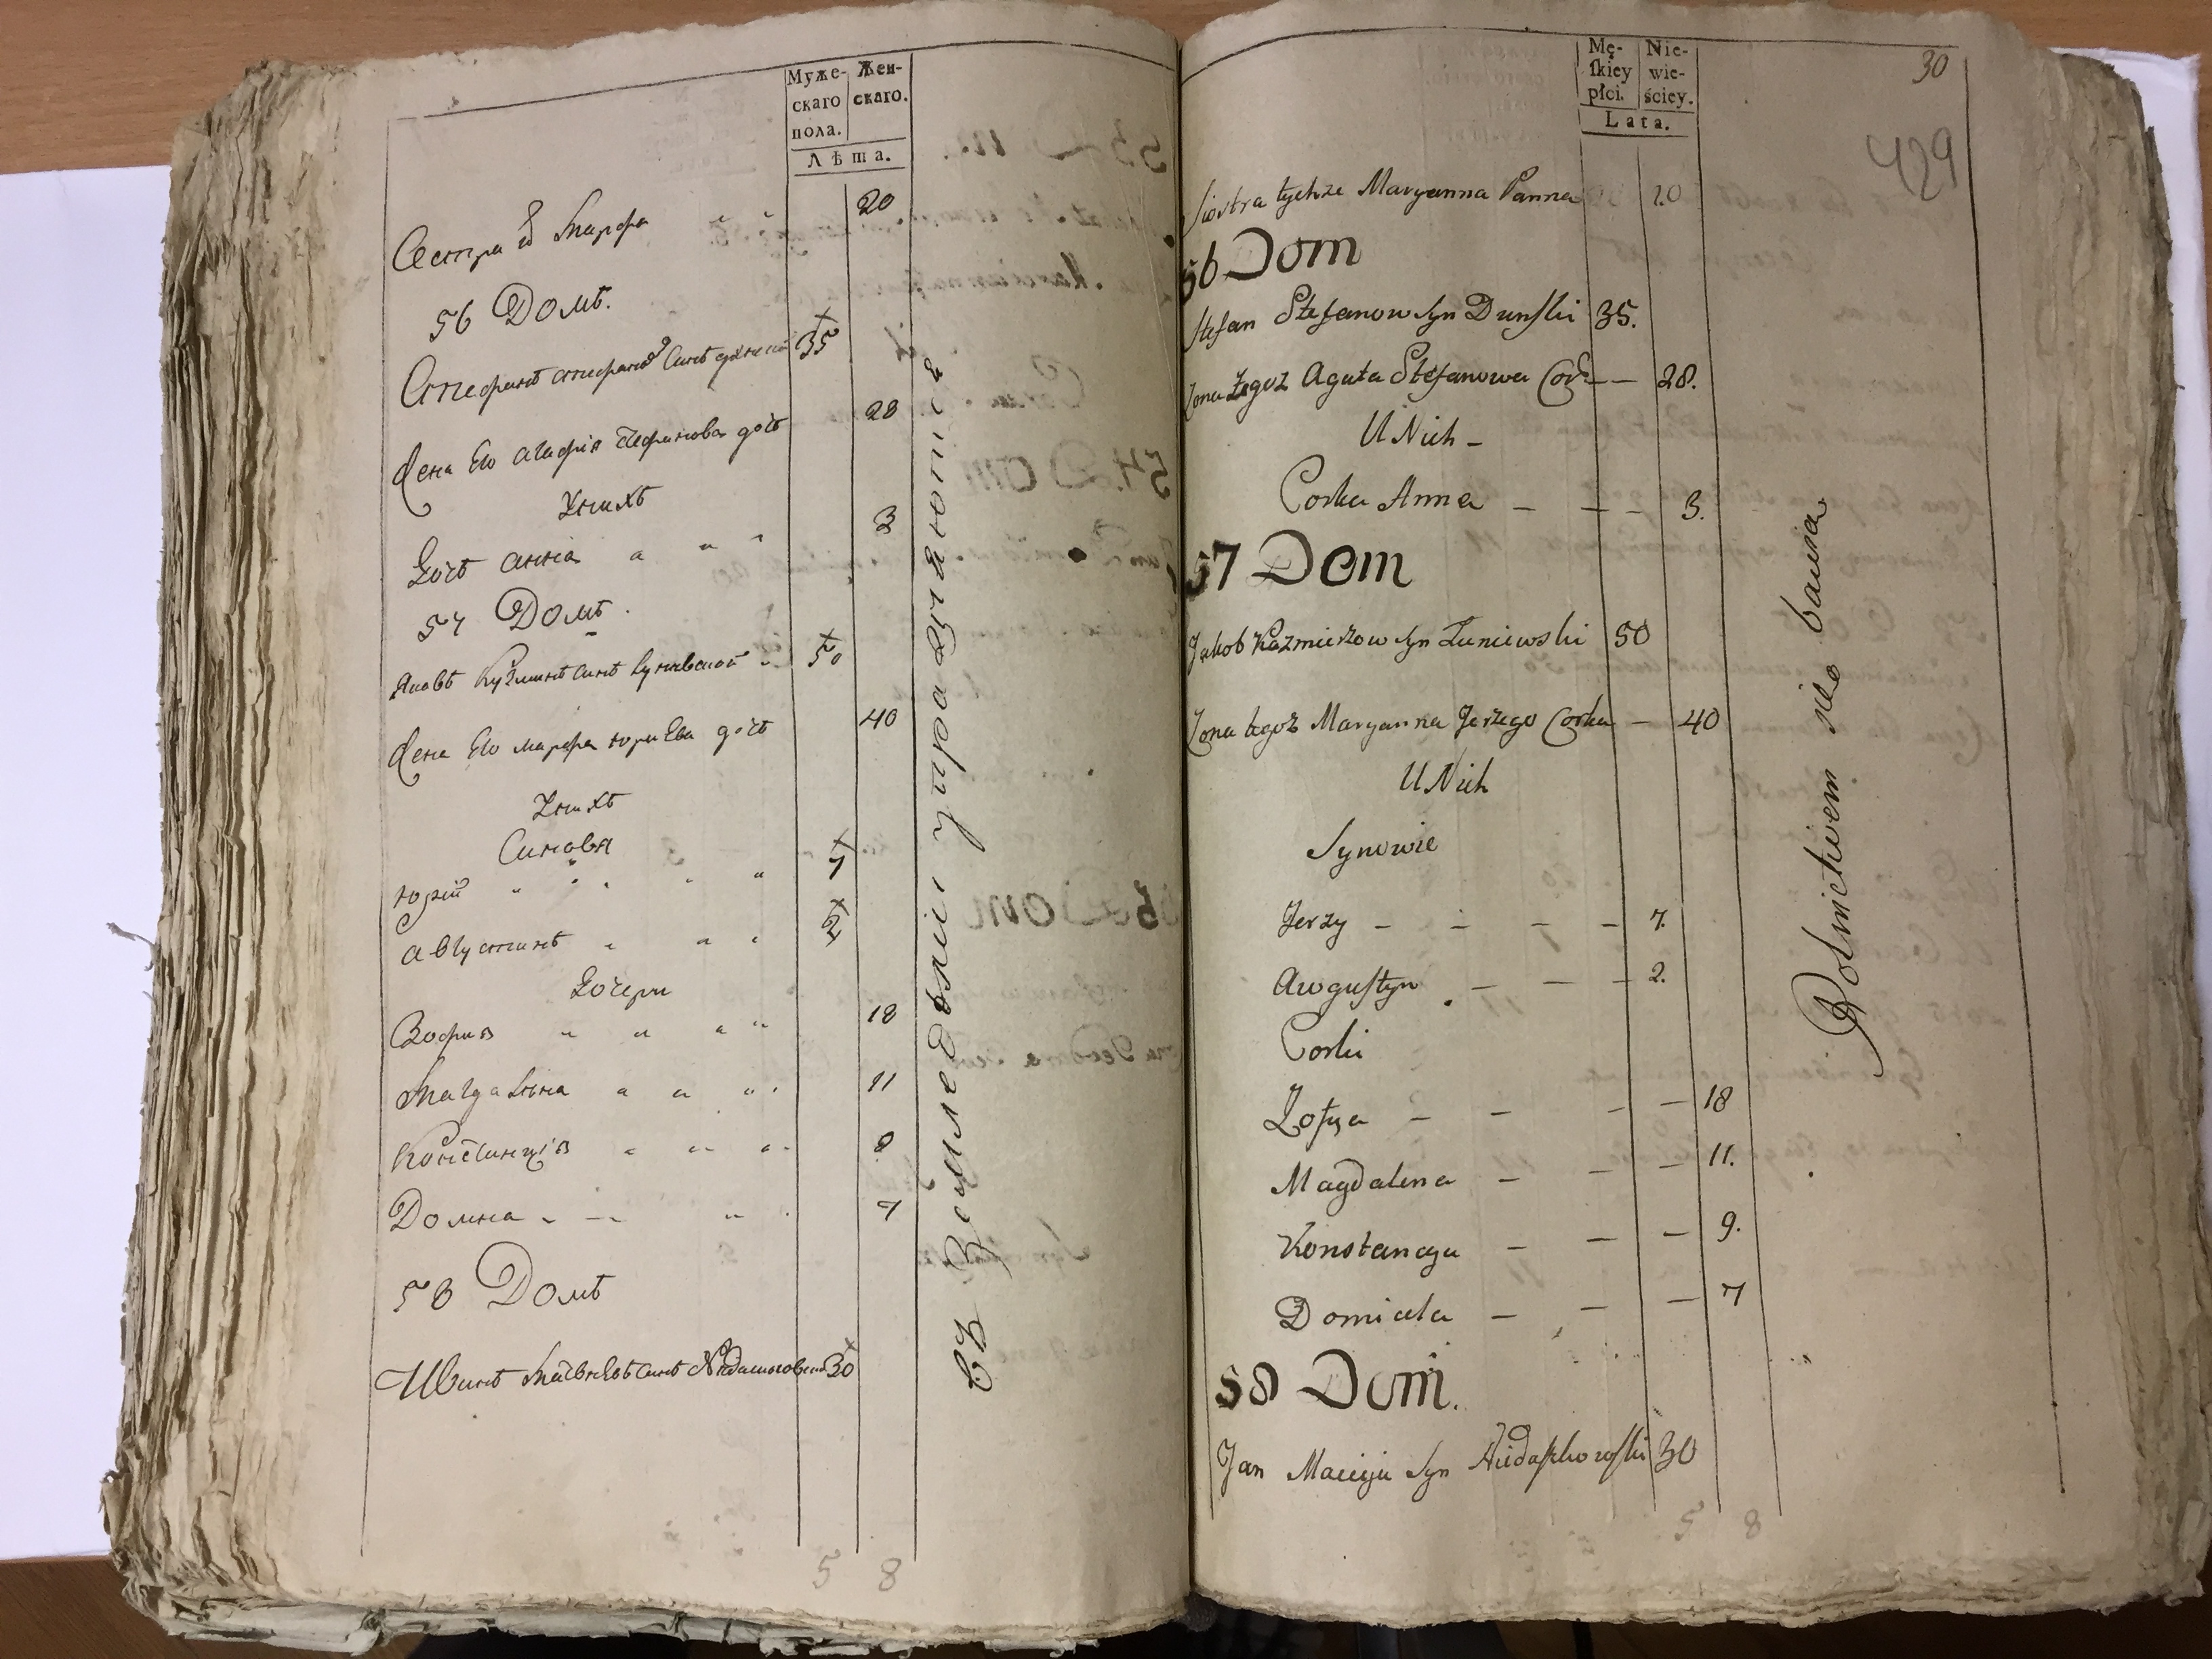 Муже-
скаго
пола.
Жен-
скаго.
Лѣта.
Сестра Ея Марфа 20
56 Домъ.
Стефанъ Стефановъ Синъ дунский 35
Жена Ево Агафія Стефанова дочъ 28
У нихъ
Дочъ Анна 3
57 Домъ.
Яковъ Кузминъ Синъ Луневской 50
Жена Ево Марфа юриева дочъ 40
У нихъ
Синовя
юрий 7
Августинъ 2
Дочери
Зофия 18
Магдалена 11
Констанція 9
Домна 7
58 Домъ
Иванъ Матвѣевъ Синъ 30
5 8
въ Земледѣлии упражняются
Mę-
ſkiey
płci.
Nie-
wie-
ściey.
Lata.
30
429
Siostra tychże Maryanna Panna 20
56 Dom
Stefan Stefanow Syn Dunſki 35.
Zona Tegoż Agata Stefanowa Cor 28.
U Nich
Corka Anna 3.
57 Dom
Jakob Kazmierzow Syn Łuniewski 50
Zona tegoż Maryanna Jerzego Corka 40
U Nich
Synowie
Jerzy 7.
Awguſtyn 2.
Corki
Zofya 18
Magdalena 11.
Konstancya 9.
Domicela 7
58 Dom.
Jan Macieja Syn 30
5 8
Rolnictwem się bawia